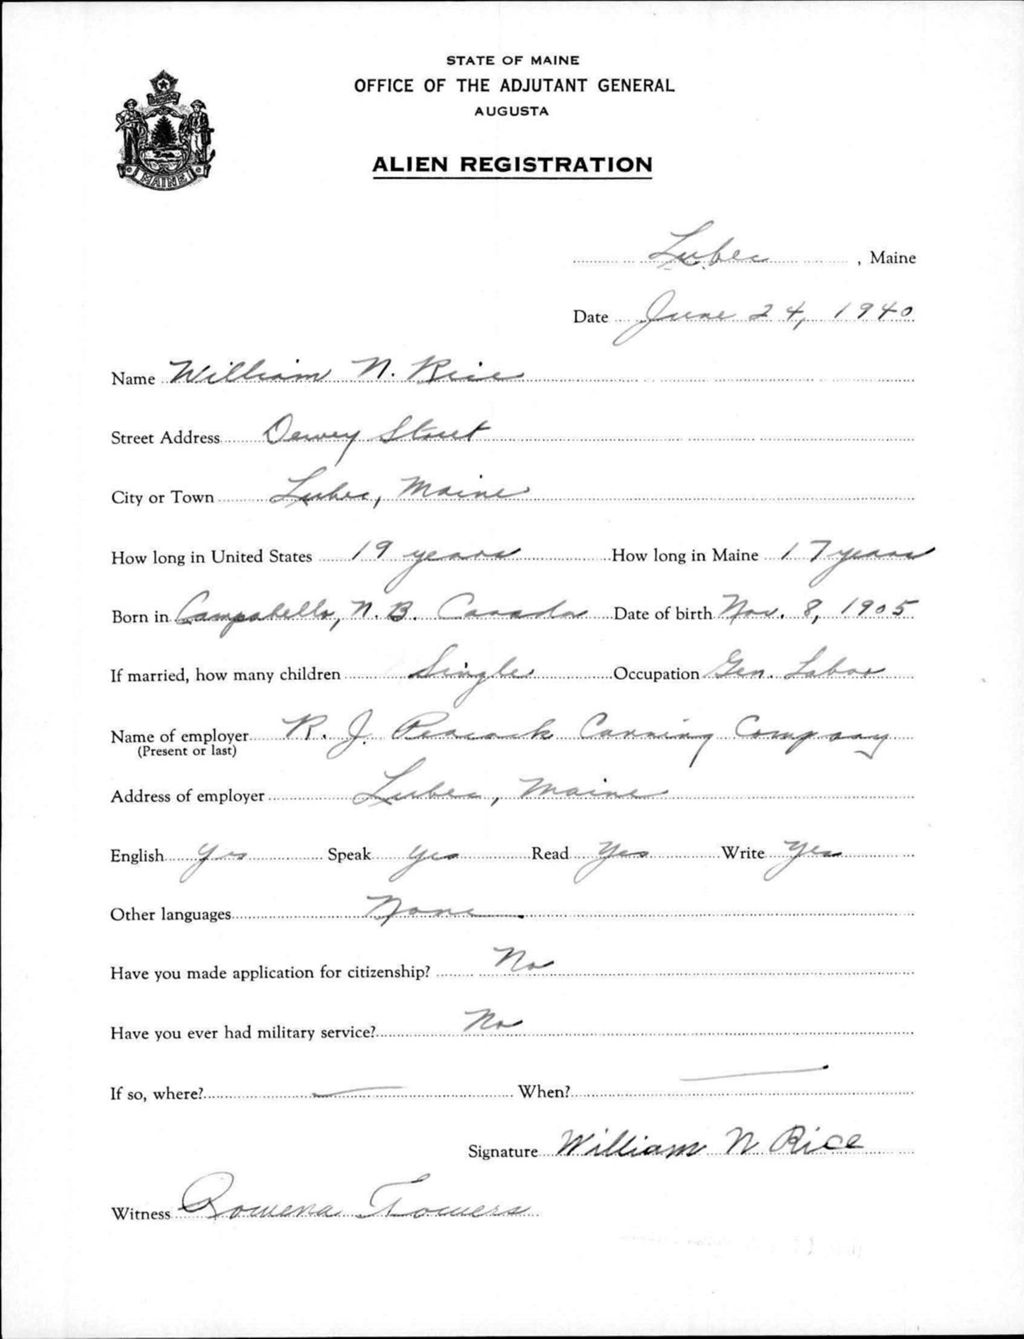 STATE OF MAINE
OFFICE OF THE ADJUTANT GENERAL
AUGUSTA
ALIEN REGISTRATION
MAINE
Lubec, Maine
Date June 24, 1940
Name William N. Rice
Street Address Dewey Street
City or Town Lubec, Maine
How long in United States 19 years How long in Maine 17 years
Born in Campobello, N.B. Canada Date of birth Nov. 8, 1905
If married, how many children Single Occupation Gen. Labor
Name of employer R. J. Peacock Canning Company
(Present or last)
Address of employer Lubec, Maine
English Yes Speak Yes Read Yes Write Yes
Other languages None.
Have you made application for citizenship? No
Have you ever had military service? No
If so, where? — When? —
Signature William N Rice
Witness Rowena Towers